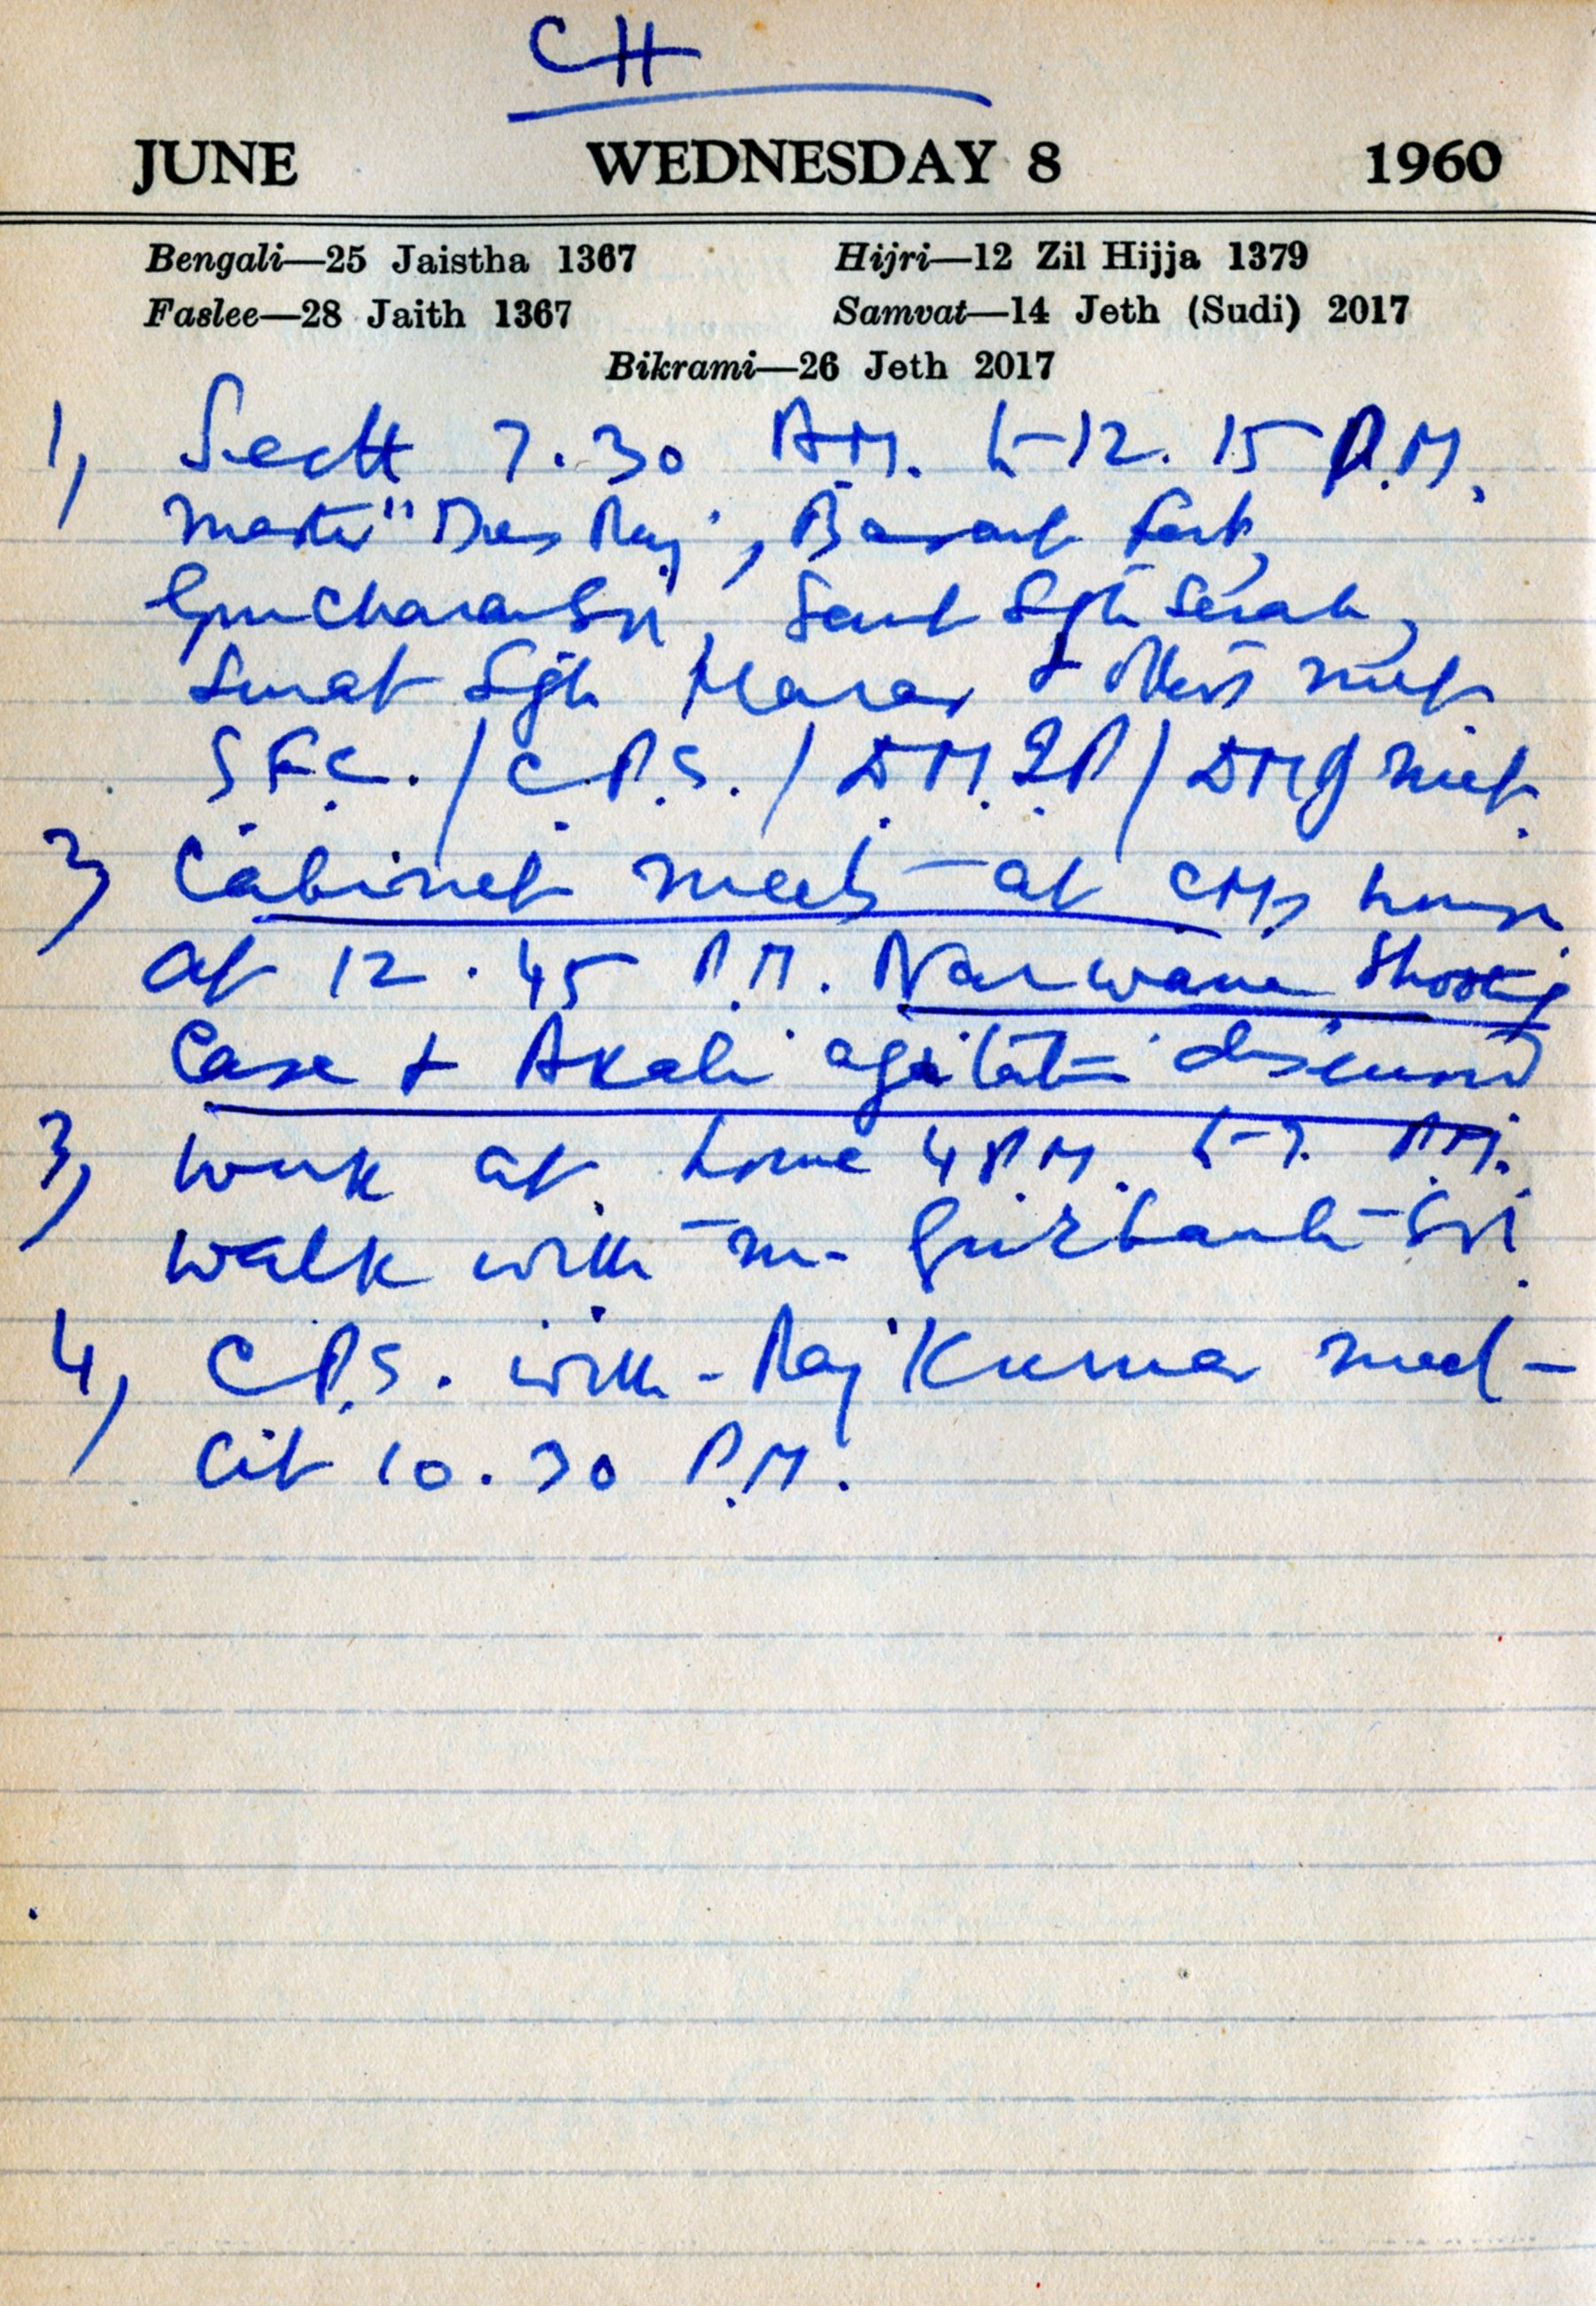 CH
JUNE WEDNESDAY 8 1960
Bengali—25 Jaistha 1367 Hijri—12 Zil Hijja 1379
Faslee—28 Jaith 1367 Samvat—14 Jeth (Sudi) 2017
Bikrami—26 Jeth 2017
1, Sectt 7.30 A.M. to 12.15 P.M.
Master Des Raj,
Gurcharan Sgh, Sant Sgh
Surat Sgh & others met
S.F.C. / C.P.S. / met
2, Cabinet meets at CM's house
at 12.45 P.M. Narwana Shooting
Case & Akali agitation discussed
3, Work at home 4 P.M. to 7. P.M.
Walk with
4, C.P.S. with Raj Kumar med-
10.30 P.M.